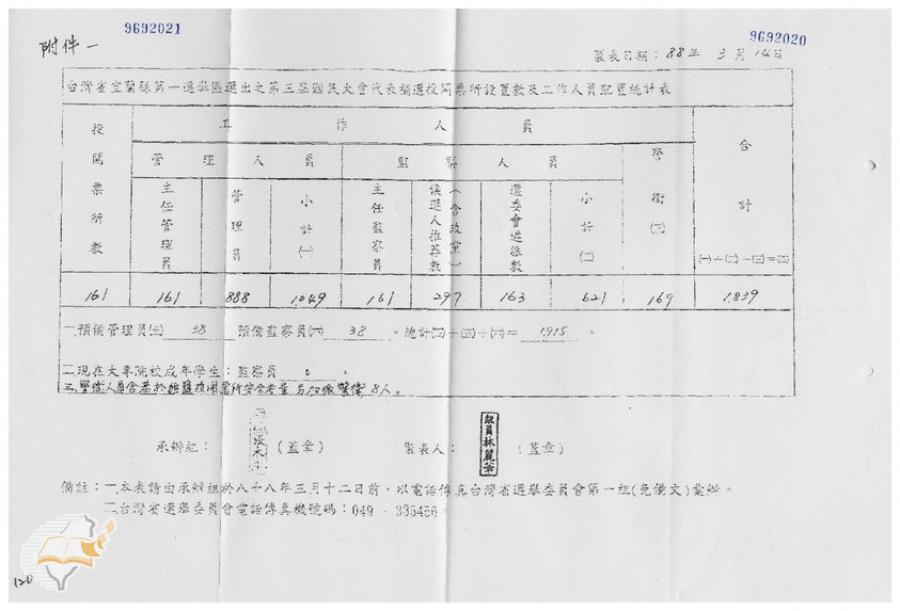 9692021
9692020
附件一
製表日期:88年 3月14日
台灣省宜蘭縣第一選舉區選出之第三屆國民大會代表補選投開票所設置數及工作人員配置統計表
投開票所數
工作人員
合計
管理人員
監察人員
警衛㈢
主任管理員
管理員
小計㈠
主任監察員
候選人推荐數(含政黨)
選委會遴派數
小計㈡
㈠+㈡+㈢=㈣
161 161 888 1049 161 297 163 621 169 1839
一預備管理員㈤ 38 預備監察員㈥ 38 。總計㈣+㈤+㈥= 1915 。
二現在大專院校成年學生:監察員 0 。
三、警衛人員含基於 投開票所安全考量另加派警衛8人。
承辦組: (蓋章) 製表人: 組員林麗 (蓋章)
備註:一本表請由承辦組於八十八年三月十二日前,以電話傳真台灣省選舉委員會第一組(免備文)彙辦。
二台灣省選舉委員會電話傳真機號碼:049-335456。
120